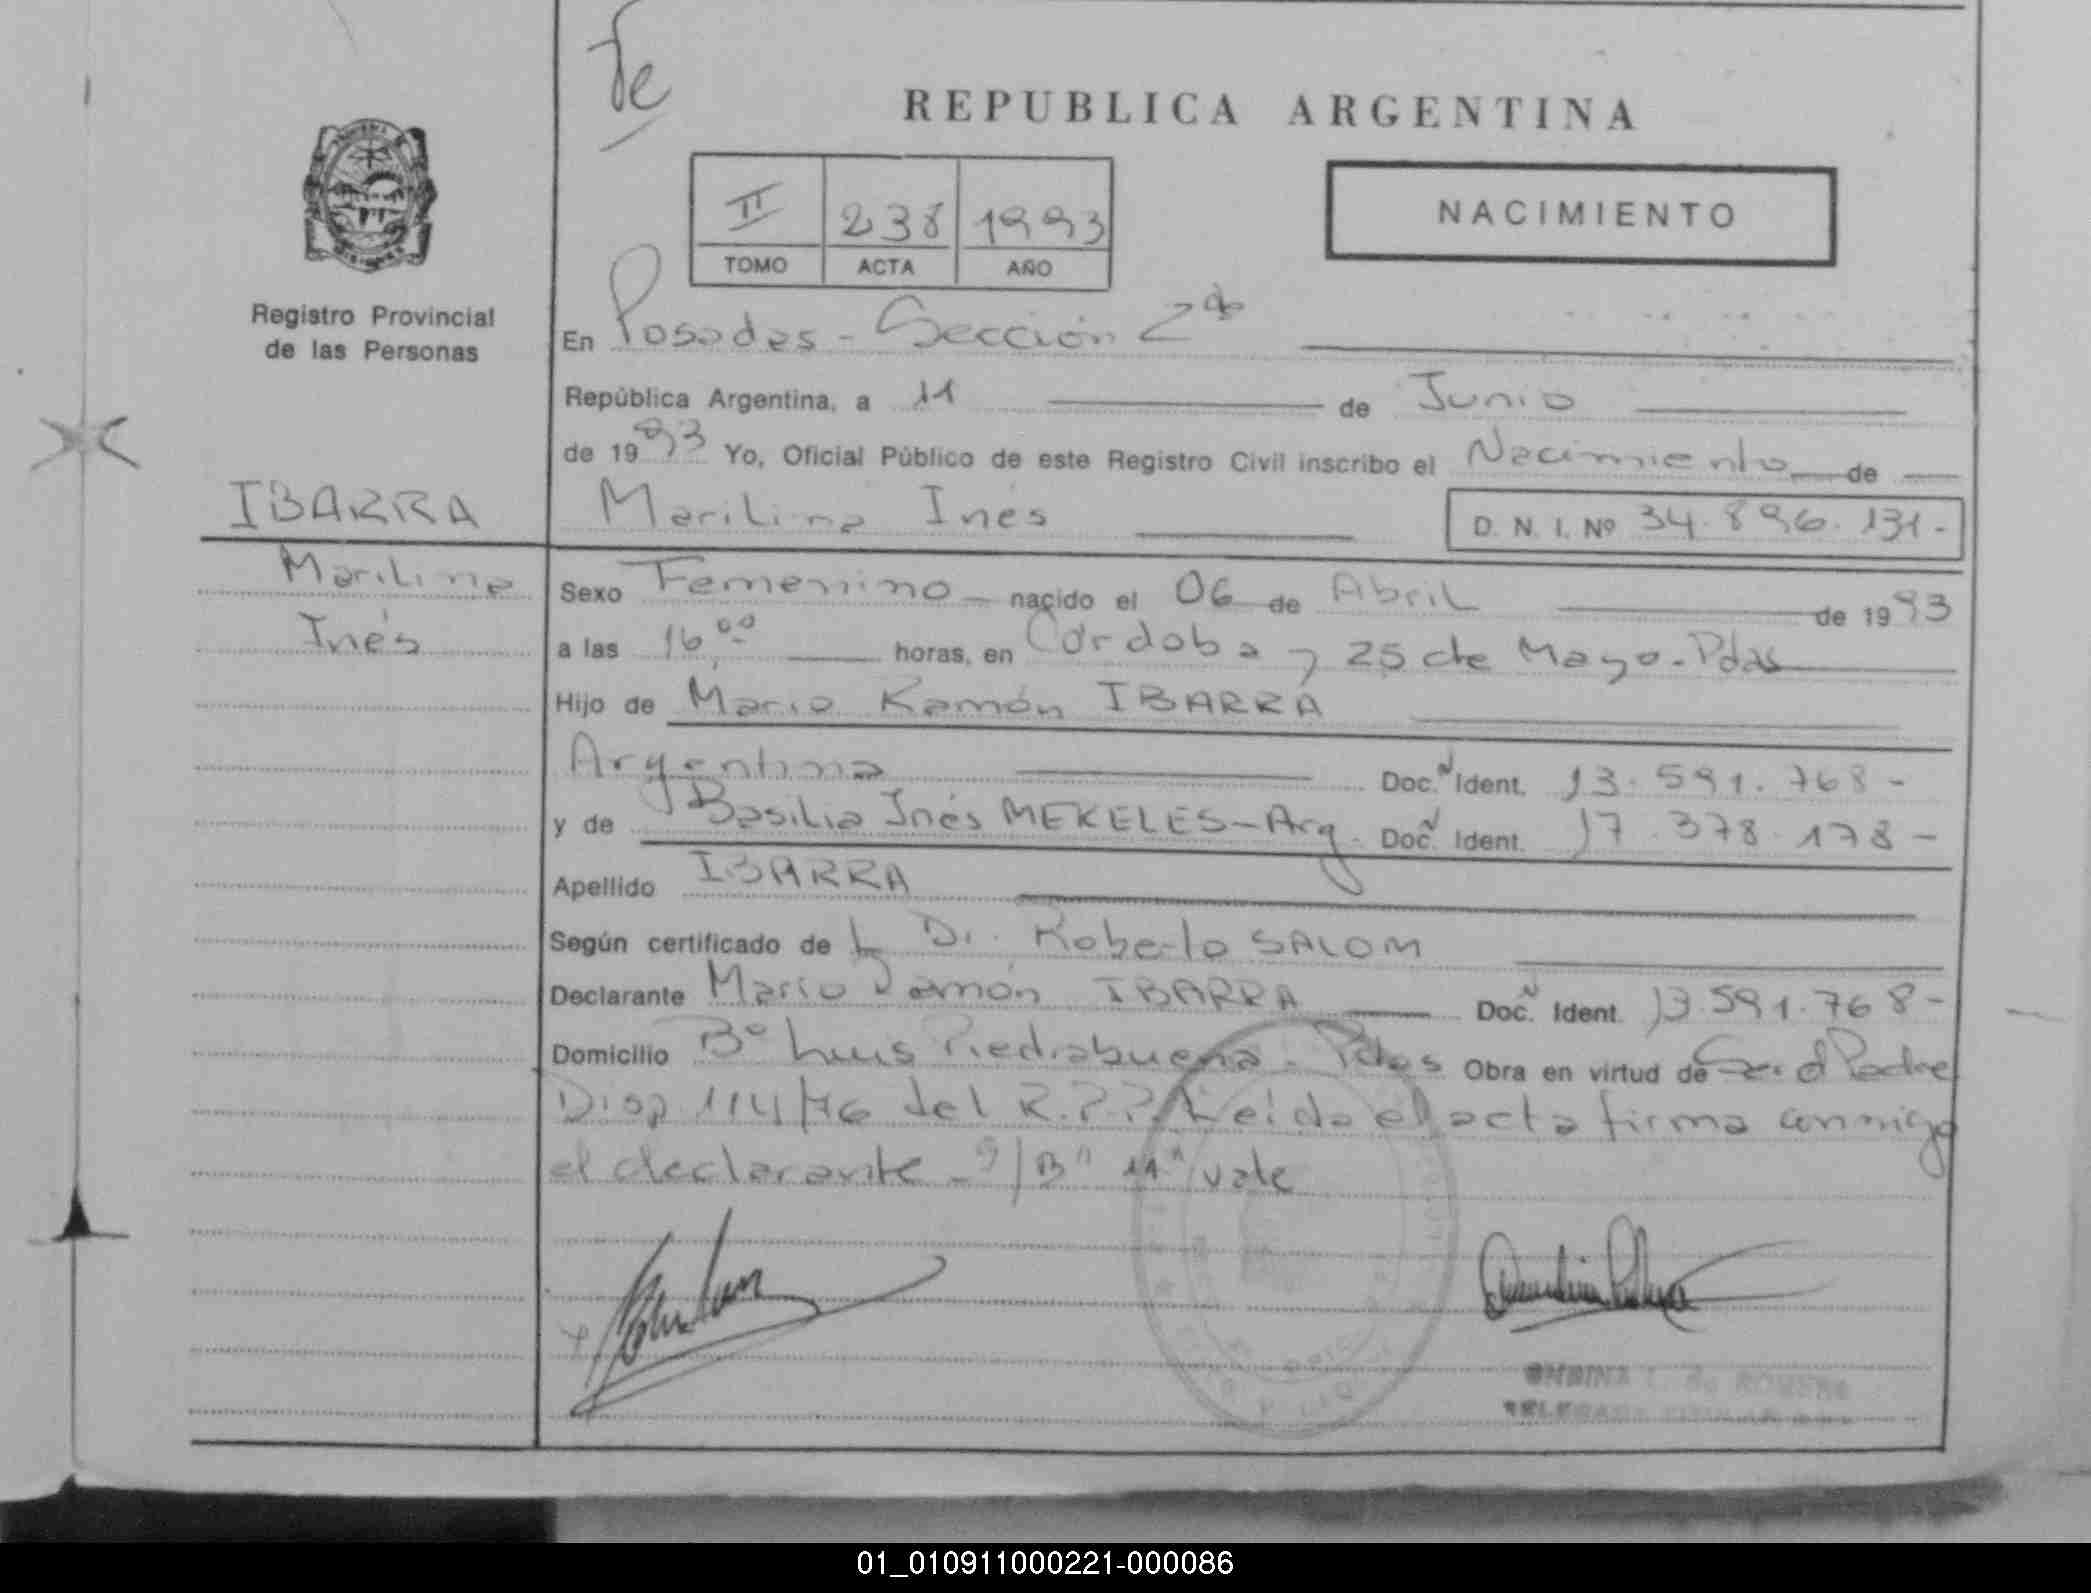 Te
REPUBLICA ARGENTINA
II 238 1993
TOMO ACTA AÑO
NACIMIENTO
Registro Provincial
de las Personas
En Posadas - Sección 2da
República Argentina, a 11 de Junio
de 1993 Yo, Oficial Público de este Registro Civil inscribo el Nacimiento de
IBARRA Marilina Inés D. N. I. Nº 34.896.131-
Marilina
Inés
Sexo Femenino nacido el 06 de Abril de 1993
a las 16,00 horas, en Córdoba y 25 de Mayo - Pdas
Hijo de Mario Ramón IBARRA
Argentina Doc. Ident. 13.591.768-
y de Basilia Inés MEKELES - Arg. Doc. Ident. 17.378.178-
Apellido IBARRA
Según certificado de Dr. Roberto SALOM
Declarante Mario Ramón IBARRA Doc. Ident. 13.591.768-
Domicilio Bº Luis Piedrabuena - Pdas Obra en virtud de Ser el Padre
Disp. 114/76 del R.P.P. Leída el acta firma conmigo
el declarante - vale
de ROMERO
01_010911000221-000086